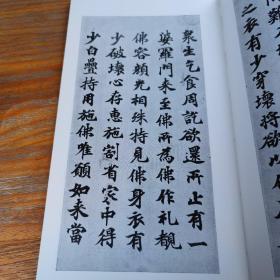 之衣有少穿壞将
衆生乞食周訖欲還所止有一
婆羅門来至佛所為佛作礼覩
佛容顔光相殊特見佛身衣有
少破壞心存惠施割省家中得
少白疊持用施佛唯願如来當